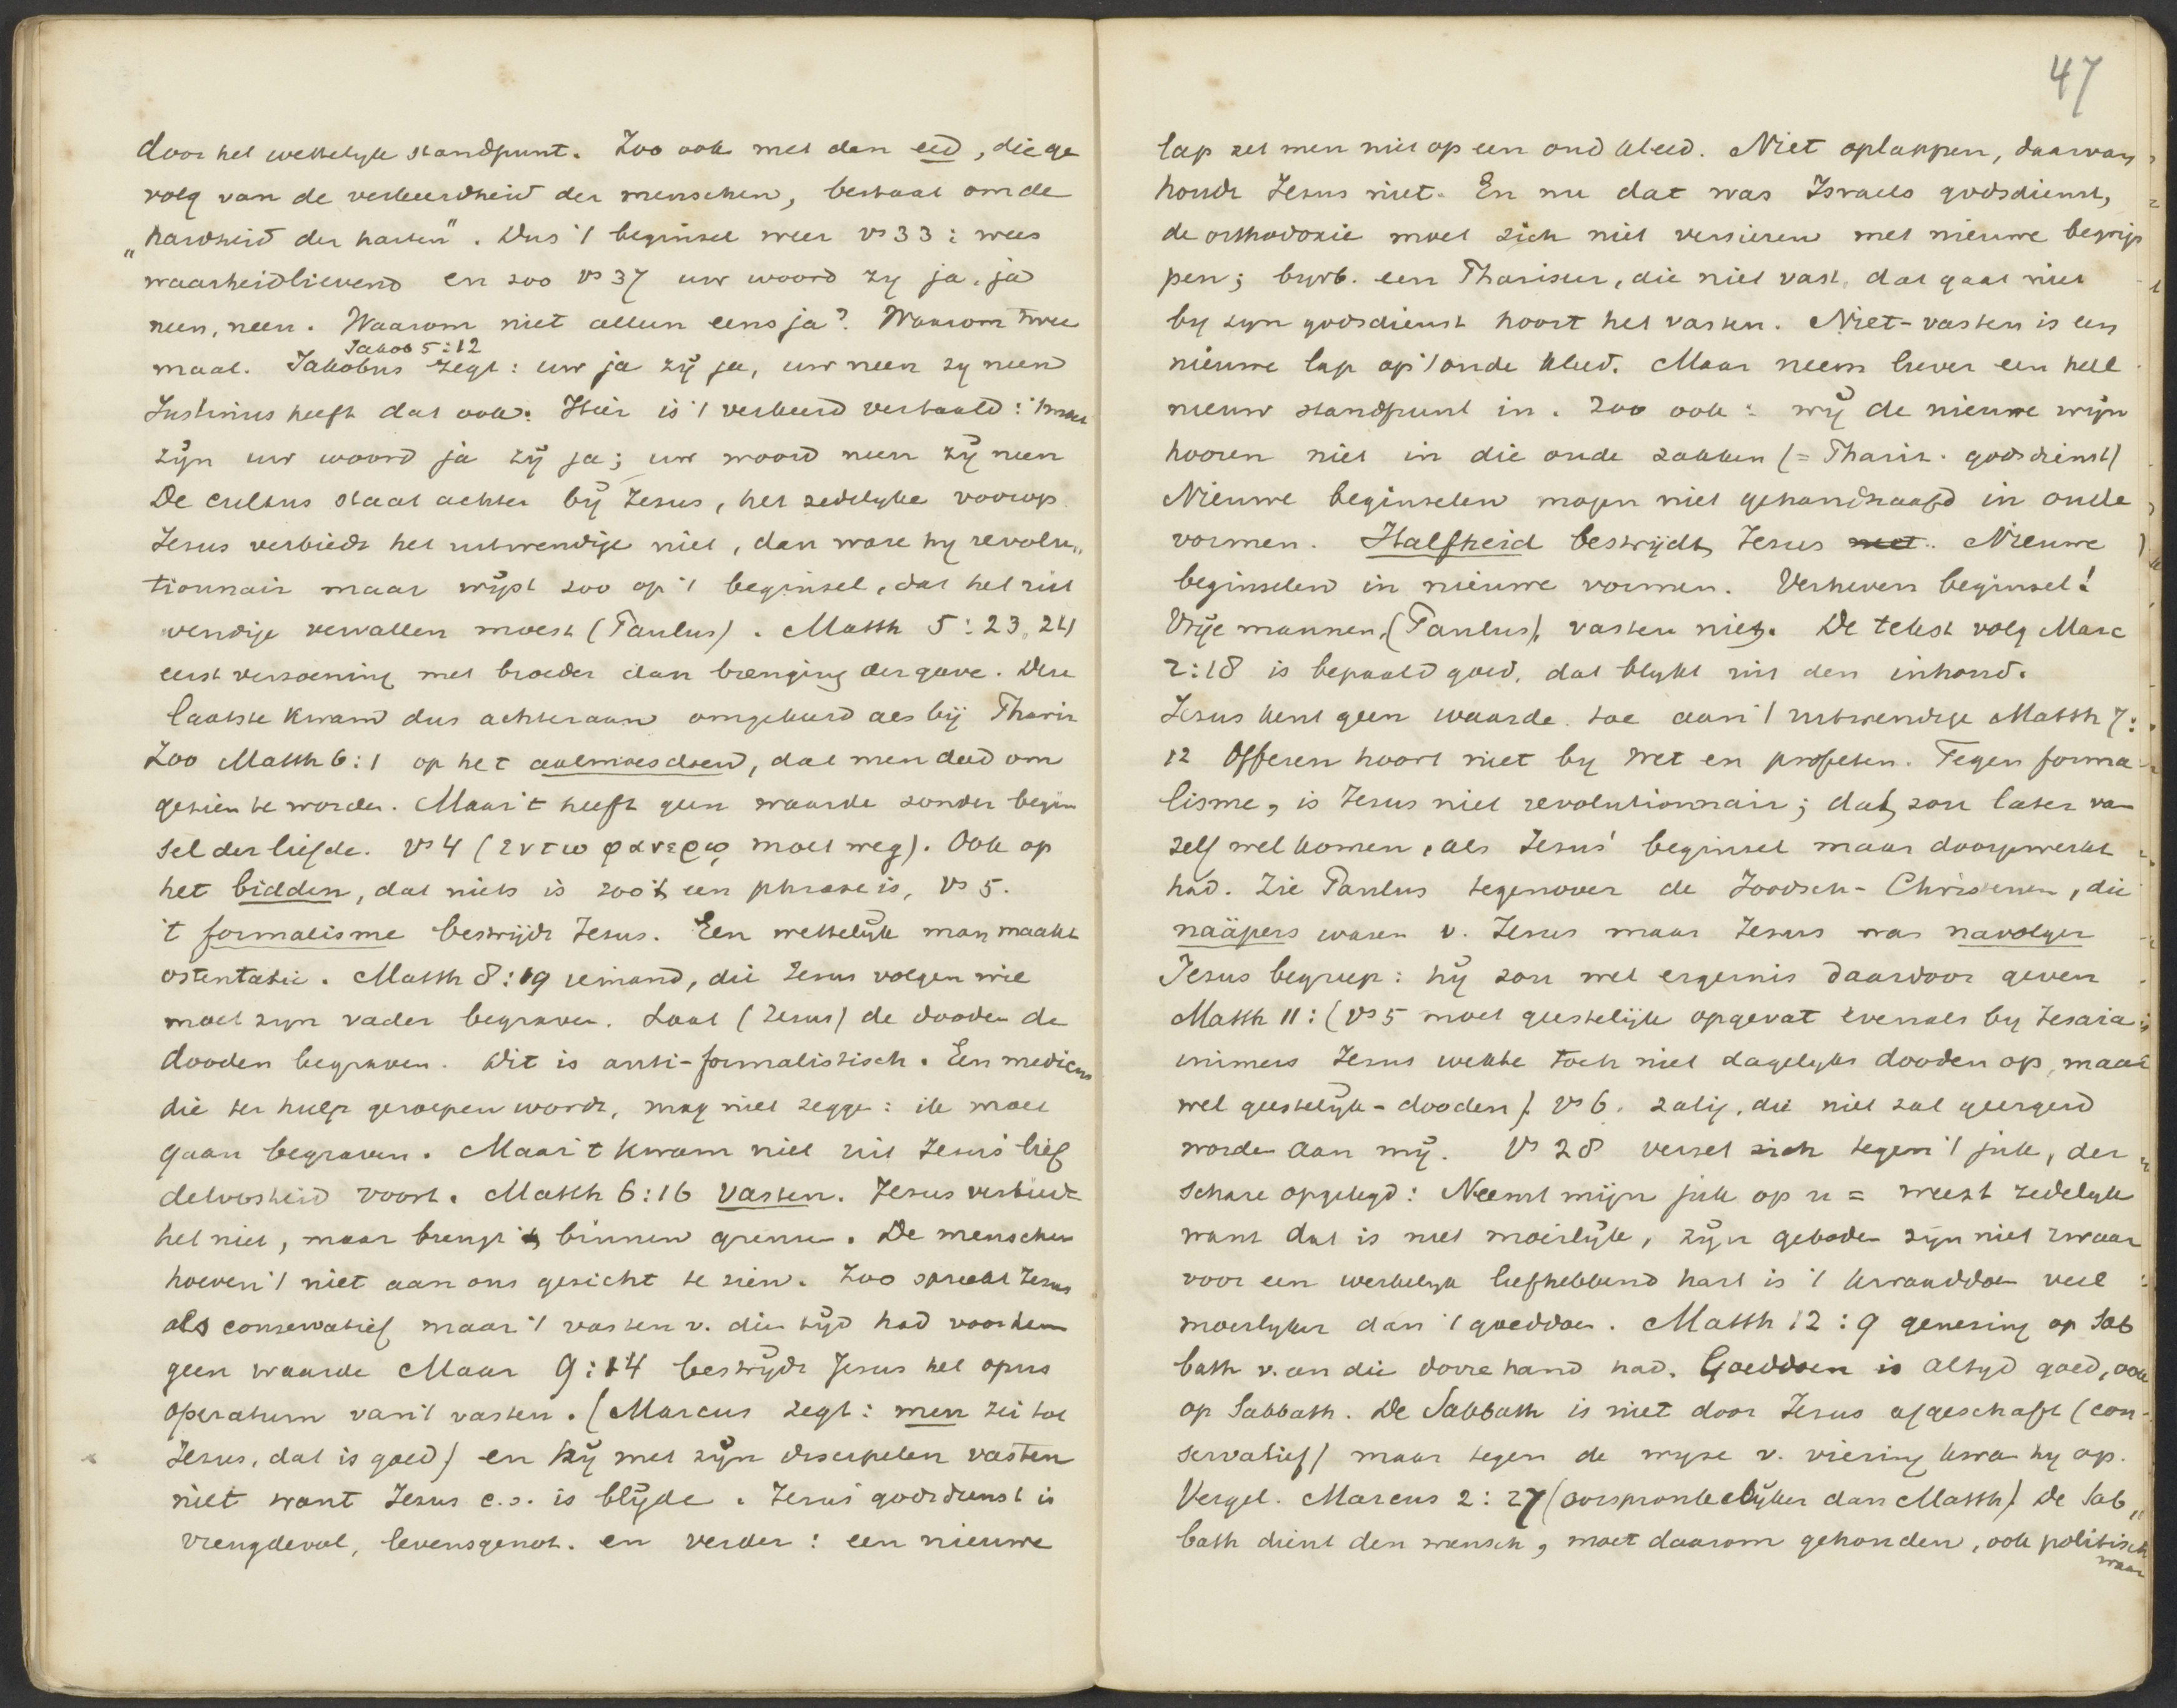 door het wettelyk standpunt. Zoo ook met den eed, die ge
volg van de verkeerdheid der menschen, bestaat om de
"hardheid der harten". Dus 't beginsel weer vs 33: wees
waarheidlievend en zoo vs 37 uw woord zy ja, ja
neen, neen. Waarom niet alleen eens ja? Waarom twee
Jakob 5:12
maal. Jakobus zegt: uw ja zÿ ja, uw neen zy neen
Justinus heeft dat ook. Hier is 't verkeerd vertaald: 't moet
zÿn uw woord ja zÿ ja; uw woord neen zÿ neen
De cultus staat achter bÿ Jesus, het zedelyke voorop
Jesus verbiedt het uitwendige niet, dan ware hy revolu„
tionnair maar wÿst zoo op 't beginsel, dat het uit
wendige vervallen moest (Paulus). Matth 5:23,24
eerst verzoening met broeder dan brenging der gave. Deze
laatste kwam dus achteraan omgekeerd als bÿ Pharis
Zoo Matth 6:1 op het aalmoesdoen, dat men deed om
gezien te worden. Maar 't heeft geen waarde zonder begin
sel der liefde. vs 4 (εν τω φανερῳ moet weg). Ook op
het bidden, dat niets is zoo 't een phrase is, vs 5.
't formalisme bestrÿdt Jesus. Een wettelÿk man maakt
ostentatie. Matth 8:19 iemand, die Jesus volgen wil
moet zyn vader begraven. Laat (Jesus) de dooden de
dooden begraven. Dit is anti-formalistisch. Een medicus
die ter hulp geroepen wordt, mag niet zegge: ik moet
gaan begraven. Maar 't kwam niet uit Jesus' lief
deloosheid voort. Matth 6:16 vasten. Jesus verbiedt
het niet, maar brengt 't binnen grenzen. De menschen
hoeven 't niet aan ons gezicht te zien. Zoo spreekt Jesus
als conservatief maar 't vasten v. dien tÿd had voor hem
geen waarde Maar 9:14 bestrÿdt Jesus het opus
operatum van 't vasten. (Marcus zegt: men zei tot
Jesus, dat is goed) en hÿ met zÿn discipelen vasten
niet want Jesus c.s. is blÿde. Jesus' godsdienst is
vreugdevol, levensgenot. en verder: een nieuwe
47
lap zet men niet op een oud kleed. Niet oplappen, daarvan
houdt Jesus niet. En nu dat was Israels godsdienst,
de orthodoxie moet zich niet versieren met nieuwe begrip
pen; byvb. een Phariseer, die niet vast, dat gaat niet
by zyn godsdienst hoort het vasten. Niet-vasten is een
nieuwe lap op 't oude kleed. Maar neem liever een heel
nieuw standpunt in. Zoo ook: wÿ de nieuwe wÿn
hooren niet in die oude zakken (= Pharis. godsdienst)
Nieuwe beginselen mogen niet gehandhaafd in oude
vormen. Halfheid bestrÿdt Jesus niet. Nieuwe
beginselen in nieuwe vormen. Verheven beginsel!
Vrÿe mannen, (Paulus), vasten niet. De tekst volg Marc
2:18 is bepaald goed, dat blykt uit den inhoud.
Jesus kent geen waarde toe aan 't uitwendige Matth 7:
12 Offeren hoort niet by wet en profeten. Tegen forma
lisme, is Jesus niet revolutionnair; dat zou later van
zelf wel komen, als Jesus' beginsel maar doorgewerkt
had. Zie Paulus tegenover de Joodsch-Christenen, die
naäpers waren v. Jesus maar Jesus was navolger
Jesus begreep: hÿ zou wel ergernis daardoor geven
Matth 11: (vs 5 moet geestelÿk opgevat evenals by Jesaia
immers Jesus wekte toch niet dagelyks dooden op, maar
wel geestelÿk-dooden). vs 6. zalig, die niet zal geergerd
worden aan mÿ. Vs 28 verzet zich tegen 't juk, der
schare opgelegd: Neemt mÿn juk op u = weest zedelyk
want dat is niet moeilÿk, zÿn geboden zÿn niet zwaar
voor een werkelyk liefhebbend hart is 't kwaaddoen veel
moeilyker dan 't goeddoen. Matth 12:9 genezing op Sab
bath v. en die dorre hand had. Goeddoen is altyd goed, ook
op Sabbath. De Sabbath is niet door Jesus afgeschaft (con-
servatief) maar tegen de wyze v. viering kwam hy op.
Vergel. Marcus 2:27 (oorspronkelÿker dan Matth). De Sab„
bath dient den mensch, moet daarom gehouden, ook politisch
waar